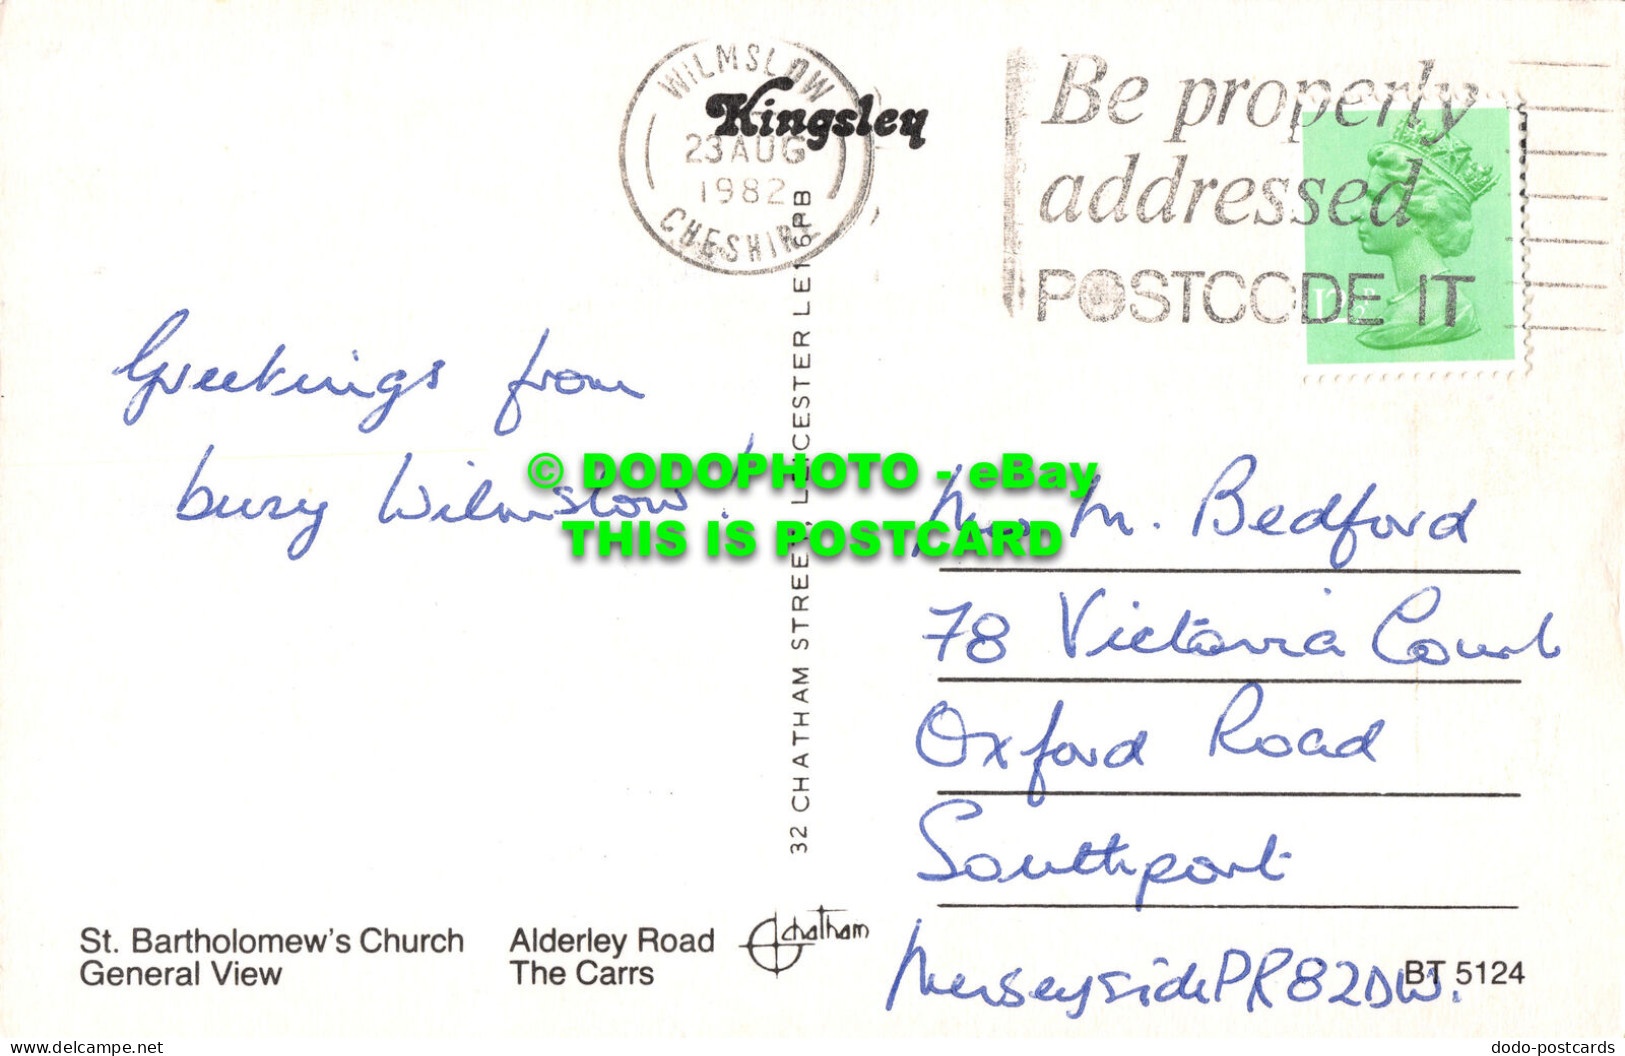 WILMSLOW
23 AUG
1982
CHESHIRE
Kingsley
Be properly
addressed
POSTCODE IT
12½P
Greetings from
busy Wilmslow!
© DODOPHOTO - eBay
THIS IS POSTCARD
32 CHATHAM STREET, LEICESTER LE1 6PB
M. Bedford
78 Victoria Court
Oxford Road
Southport
Merseyside PR8 2DW.
St. Bartholomew's Church Alderley Road
General View The Carrs
Chatham
BT 5124
delcampe.net
dodo-postcards